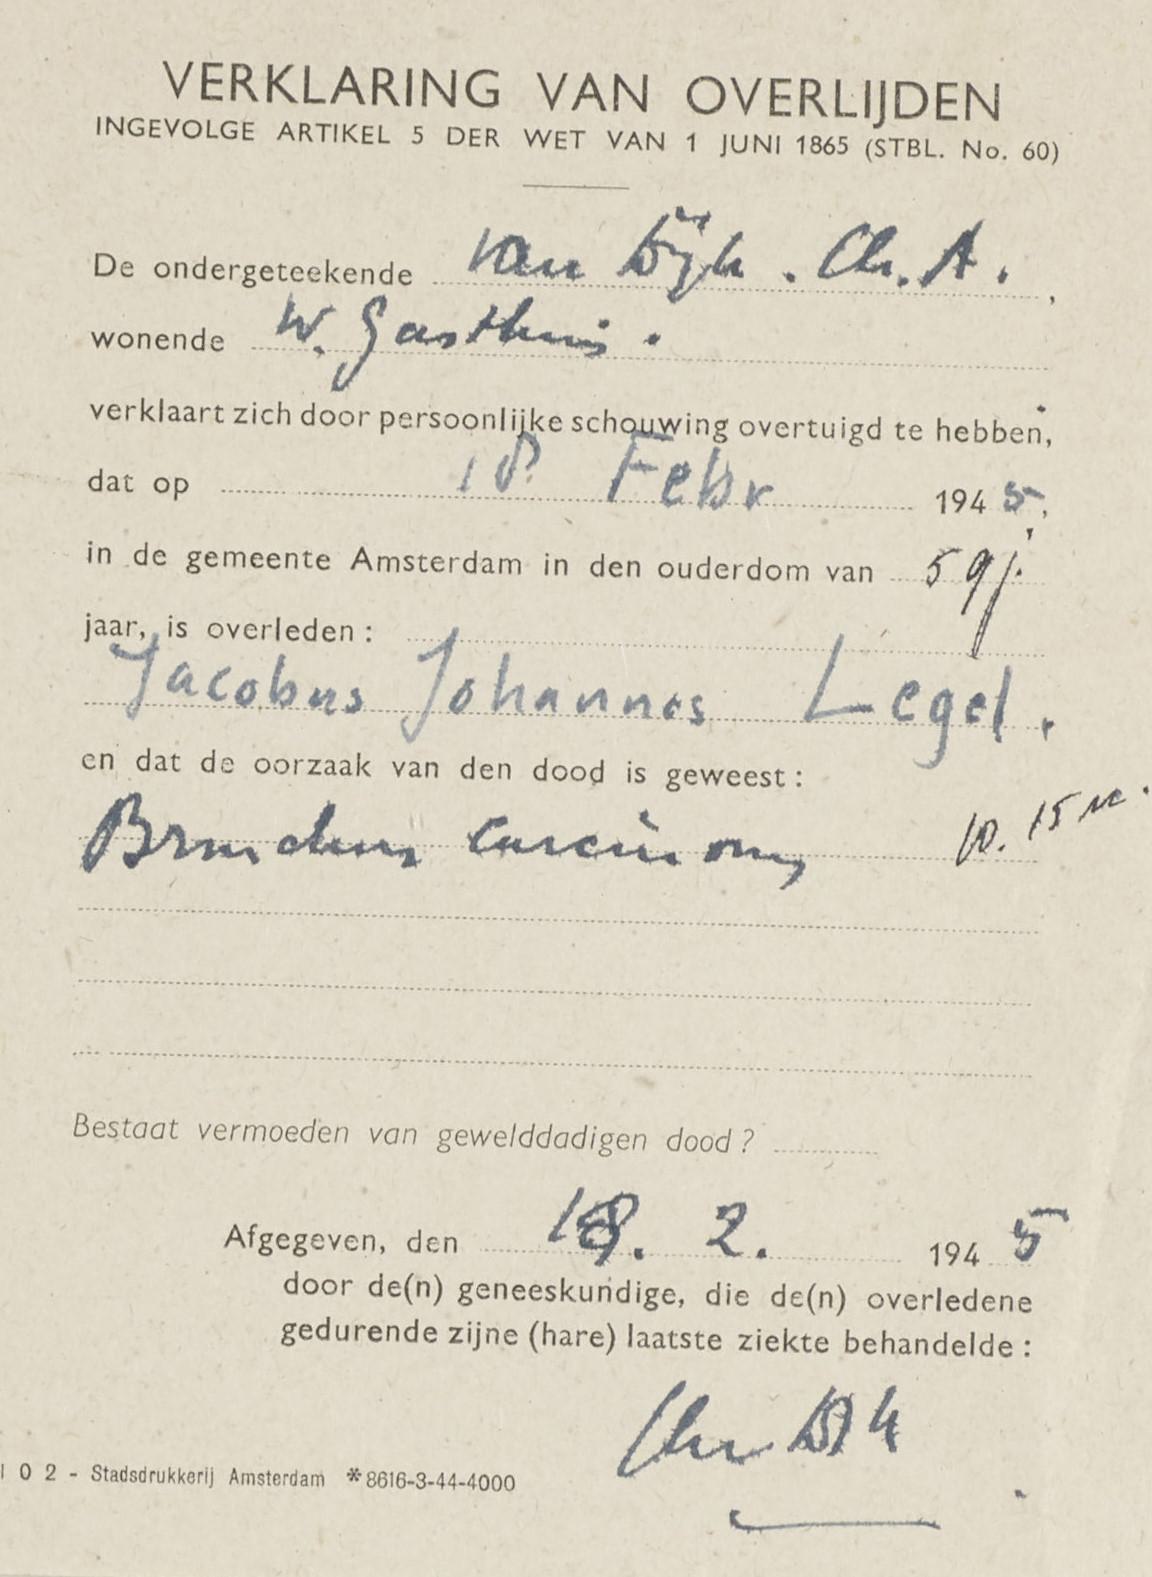 VERKLARING VAN OVERLIJDEN
INGEVOLGE ARTIKEL 5 DER WET VAN 1 JUNI 1865 (STBL. No. 60)
De ondergeteekende van Dijk . Ch. A. ,
wonende W. Gasthuis .
verklaart zich door persoonlijke schouwing overtuigd te hebben,
dat op 18 Febr 1945,
in de gemeente Amsterdam in den ouderdom van 59 j.
jaar, is overleden :
Jacobus Johannes Legel .
en dat de oorzaak van den dood is geweest :
Bronchus carcinoom 10. 15 
Bestaat vermoeden van gewelddadigen dood ?
Afgegeven, den 18. 2. 1945
door de(n) geneeskundige, die de(n) overledene
gedurende zijne (hare) laatste ziekte behandelde :
1 0 2 - Stadsdrukkerij Amsterdam * 8616-3-44-4000